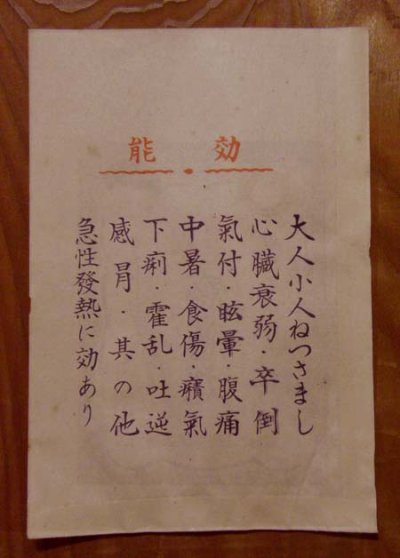 効能
大人小人ねつさまし
心臓衰弱・卒倒
氣付・眩暈・腹痛
中暑・食傷・癪氣
下痢・霍乱・吐逆
感冐・其の他
急性發熱に効あり